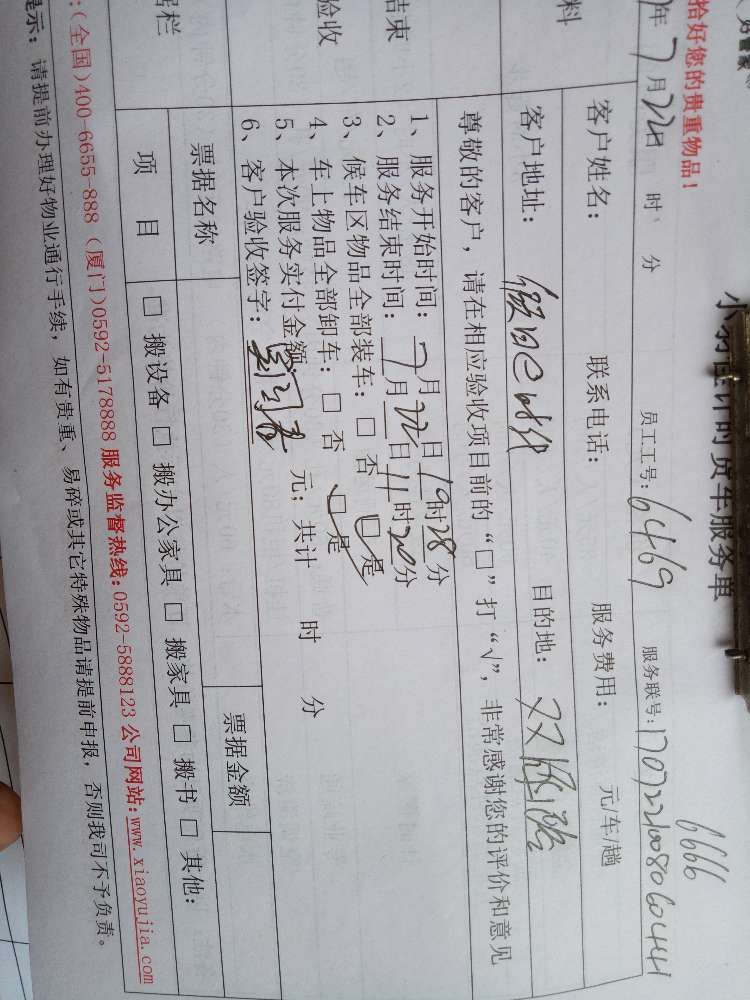 拾好您的贵重物品！
计时货车服务单
6666
年7月22日 时 分 员工工号:6469 服务联号:1707221008060441
客户姓名: 联系电话: 服务费用: 元/车/趟
客户地址: 假日 目的地:
尊敬的客户，请在相应验收项目前的“□”打“√”，非常感谢您的评价和意见
1、服务开始时间:7月22日19时28分
2、服务结束时间:7月22日11时20分
3、候车区物品全部装车:□否 □是
4、车上物品全部卸车:□否 □是
5、本次服务实付金额 元；共计 时 分
6、客户验收签字:
料
结束
验收
据栏
票据名称 票据金额
项 目 □搬设备□搬办公家具□搬家具□搬书□其他:
:(全国)400-6655-888 (厦门)0592-5178888 服务监督热线:0592-5888123 公司网站:www.xiaoyujia.com
提示: 请提前办理好物业通行手续，如有贵重、易碎或其它特殊物品请提前申报，否则我司不予负责。